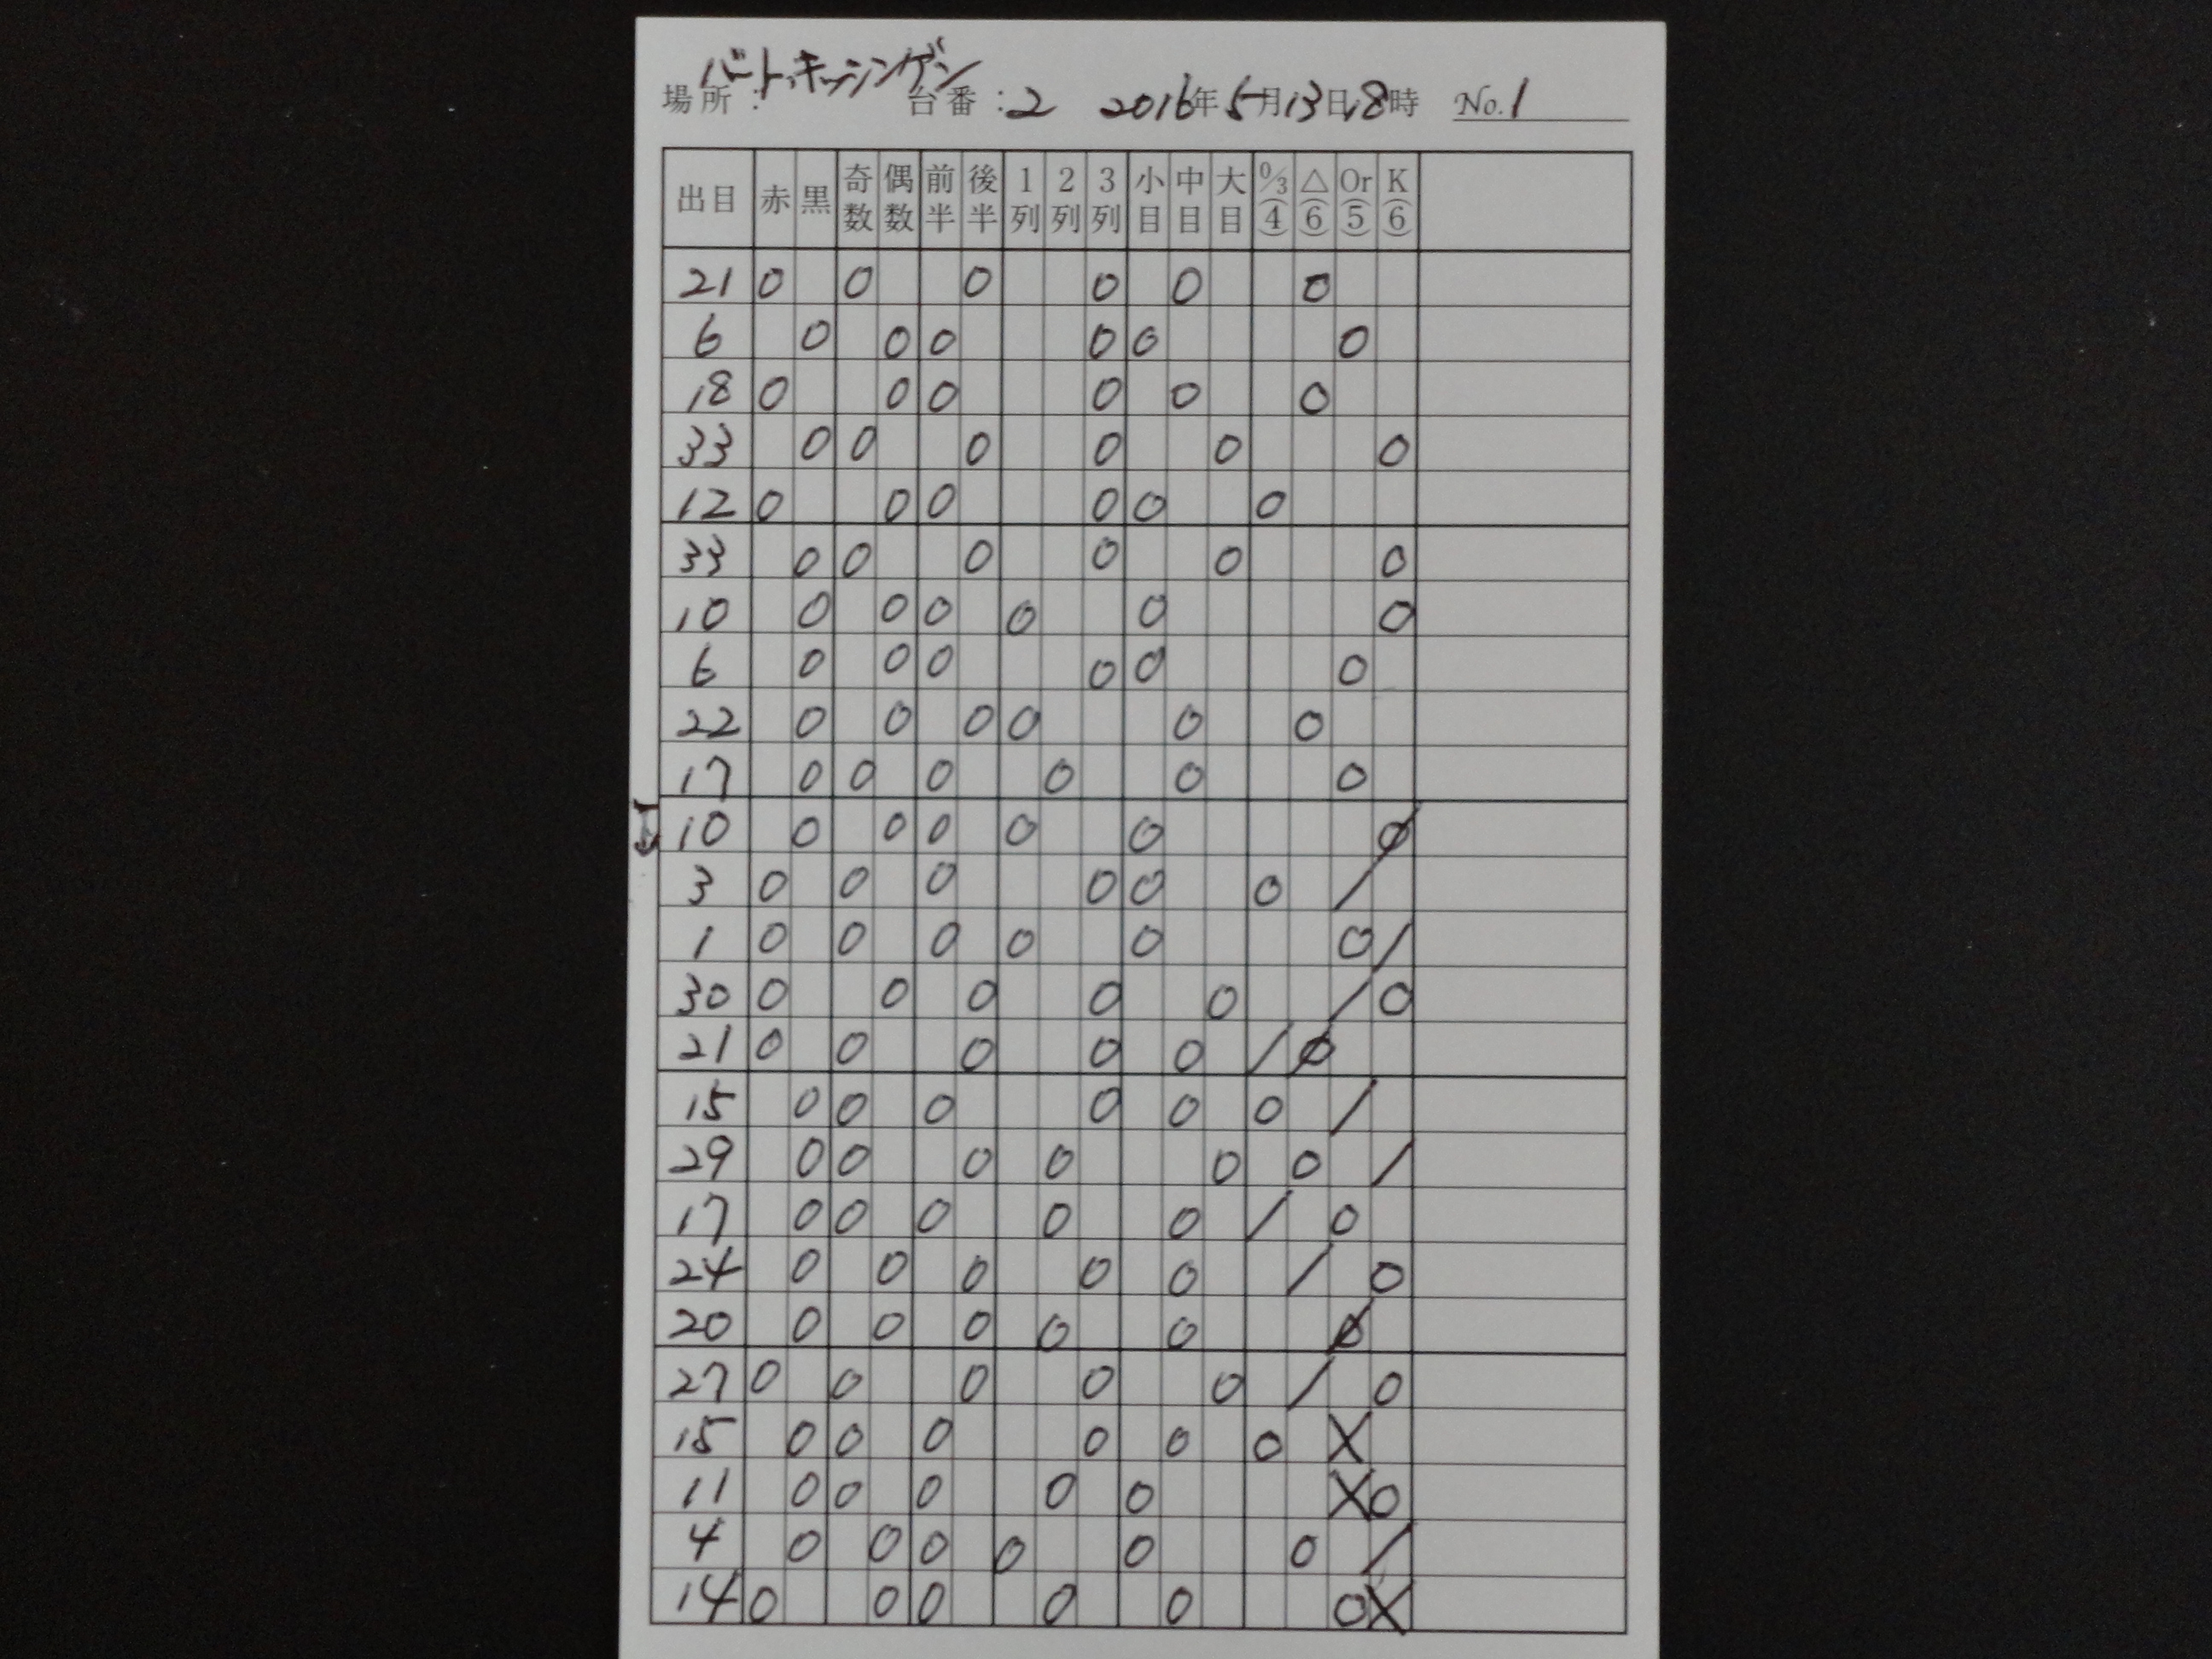 バート・キッシンゲン
場所： 台番：2 2016年5月13日18時 No.1
出目 赤 黒 奇数 偶数 前半 後半 1列 2列 3列 小目 中目 大目 0/3(4) △(6) Or(5) K(6)
21 0 0 0 0 0 0
6 0 0 0 0 0 0
18 0 0 0 0 0 0
33 0 0 0 0 0 0
12 0 0 0 0 0 0
33 0 0 0 0 0 0
10 0 0 0 0 0 0
6 0 0 0 0 0 0
22 0 0 0 0 0 0
17 0 0 0 0 0 0
10 0 0 0 0 0 0/
3 0 0 0 0 0 0 /
1 0 0 0 0 0 0 /
30 0 0 0 0 0 / 0
21 0 0 0 0 0 / 0/
15 0 0 0 0 0 0 /
29 0 0 0 0 0 0 /
17 0 0 0 0 0 / 0
24 0 0 0 0 0 / 0
20 0 0 0 0 0 0/
27 0 0 0 0 0 / 0
15 0 0 0 0 0 0 X
11 0 0 0 0 0 X 0
4 0 0 0 0 0 0 /
14 0 0 0 0 0 0 X